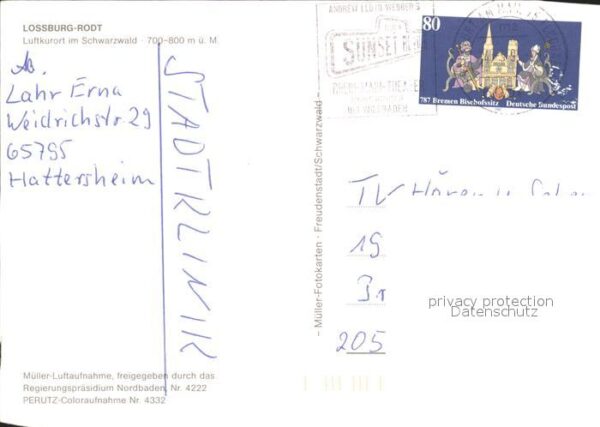 LOSSBURG-RODT
Luftkurort im Schwarzwald · 700–800 m ü. M.
Lahr Erna
Weidrichstr. 29
65795
Hattersheim
STADTKLINIK
Müller-Luftaufnahme, freigegeben durch das
Regierungspräsidium Nordbaden, Nr. 4222
PERUTZ-Coloraufnahme Nr. 4332
– Müller-Fotokarten · Freudenstadt/Schwarzwald –
ANDREW LLOYD WEBBER'S
SUNSET
80
787 Bremen Bischofssitz Deutsche Bundespost
TV Hören
19
205
privacy protection
Datenschutz